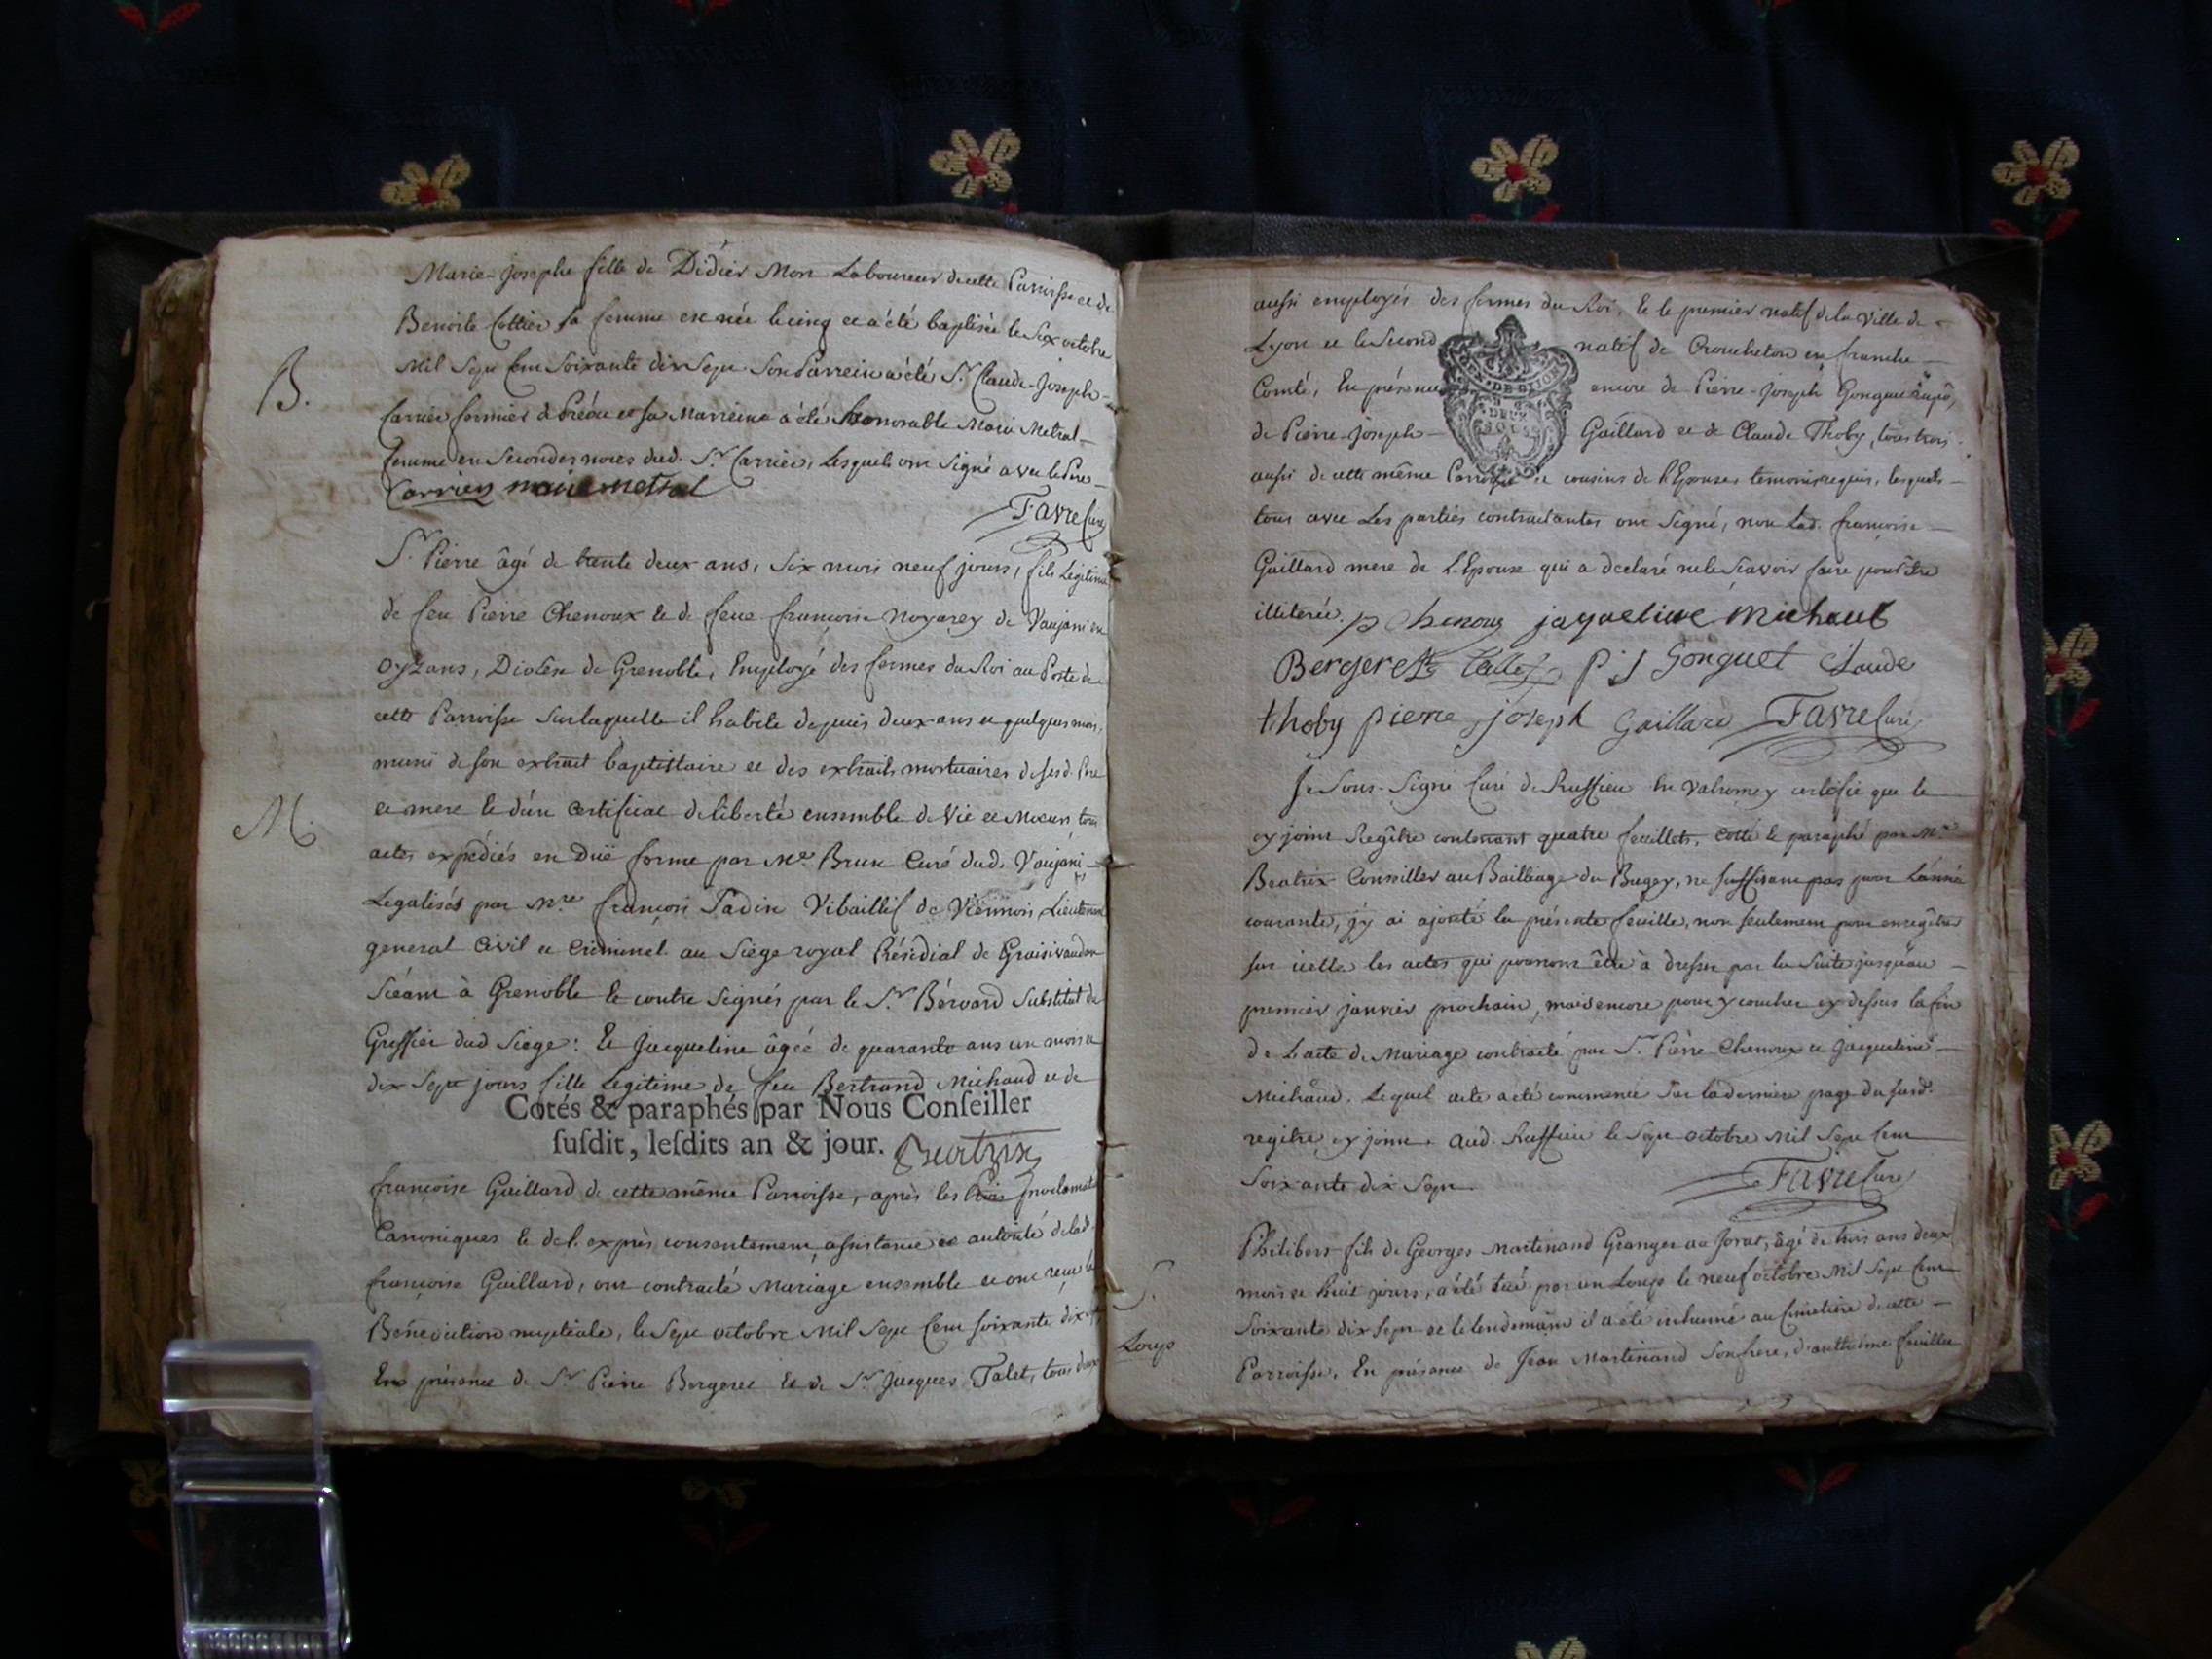 Marie-josephe fille de Didier Mon Laboureur de cette Parroisse et de
Benoite Cottier sa femme est née le cinq et a été baptisée le six octobre
B.
Mil Sept Cent Soixante dix Sept. Son Parrein a été Sr. Claude-Joseph
Carrier fermier de et sa Marreine a été honorable Marie Metral
femme en Secondes noces dud. Sr. Carrier, Lesquels ont Signé avec le Pere
Carrier marie metral
Favre Curé
Sr. Pierre âgé de trente deux ans, Six mois neuf jours, fils Légitime
de feu Pierre Chenoux et de feue françoise Noyarey de Vaujani en
Oyzans, Diocèse de Grenoble, Employé des fermes du Roi au Poste de
cette Parroisse Sur laquelle il habite depuis deux ans et quelques mois,
muni de son extrait baptistaire et des extraits mortuaires de sesd. Pere
M.
et mere et d'un Certificat de liberté ensemble de Vie et Moeurs, tous
actes expédiés en Duë forme par Mre. Brun Curé dud. Vaujani
Legalisés par Mre. françois Vibaillif de Viennois Lieutenant
general Civil et Criminel au Siège royal Présidial de Graisivaudan
Séant à Grenoble et contre Signés par le Sr. Bérard Substitut du
Greffier dud Siege: Et Jacqueline âgée de quarante ans un mois et
dix Sept jours fille Legitime de feu Bertrand Michaud et de
Cotés & paraphés par Nous Conſeiller
ſuſdit, leſdits an & jour. Beatrix
françoise Gaillard de cette même Parroisse, après les trois proclamat
Canoniques et de l'exprès consentement, assistance et autorité de lad.
françoise Gaillard, ont contracté Mariage ensemble et ont reçu la
Bénédiction nuptiale, le Sept octobre Mil Sept Cent soixante dix-sept
En présence de Sr. Pierre Bergeret et de Sr. Jacques Talet, tous deux
aussi employés des fermes du Roi, et le premier natif de la Ville de
Lyon et le Second natif de en franche
Comté, En présence encore de Pierre-joseph Gonguet
DE DIJON
DEUX
SOLS
de Pierre-Joseph Gaillard et de Claude Thoby, tous trois
aussi de cette même Parroisse et cousins de l'Epouse, temoins requis, lesquels
tous avec Les parties contractantes ont Signé, non Lad. françoise
Gaillard mere de L'Epouse qui a declaré ne le Sçavoir faire pour être
illiterée. p Chenoux jaqueline Michaud
Bergeret Talet p j Gonguet Claude
thoby pierre joseph Gaillard Favre Curé
Je Sous-Signé Curé de Ruffieu En Valromey certifie que le
cy joint Regître contenant quatre feuillets, cotté et paraphé par Mre
Beatrix Conseiller au Bailliage du Bugey, ne suffisant pas pour L'année
courante, j'y ai ajouté la présente feuille, non seulement pour enregîtrer
sur icelle les actes qui pourront être à dresser par la Suite jusqu'au
premier janvier prochain, mais encore pour y coucher cy dessus la fin
de L'acte de Mariage contracté par Sr. Pierre Chenoux et Jacqueline
Michaud. Lequel acte a été commencé Sur la dernière page du susd.
regître cy joint, aud. Ruffieu le Sept octobre Mil Sept Cent
Soixante dix Sept.
Favre Curé
Philibert fils de Georges Martinand Granger au Jorat, âgé de trois ans deux
mois et huit jours, a été tué par un Loup le neuf octobre Mil Sept Cent
S.
Soixante dix Sept et le lendemain il a été inhumé au Cimetière de cette
Loup
Parroisse, En présence de Jean Martinand Son frere, d'anthelme